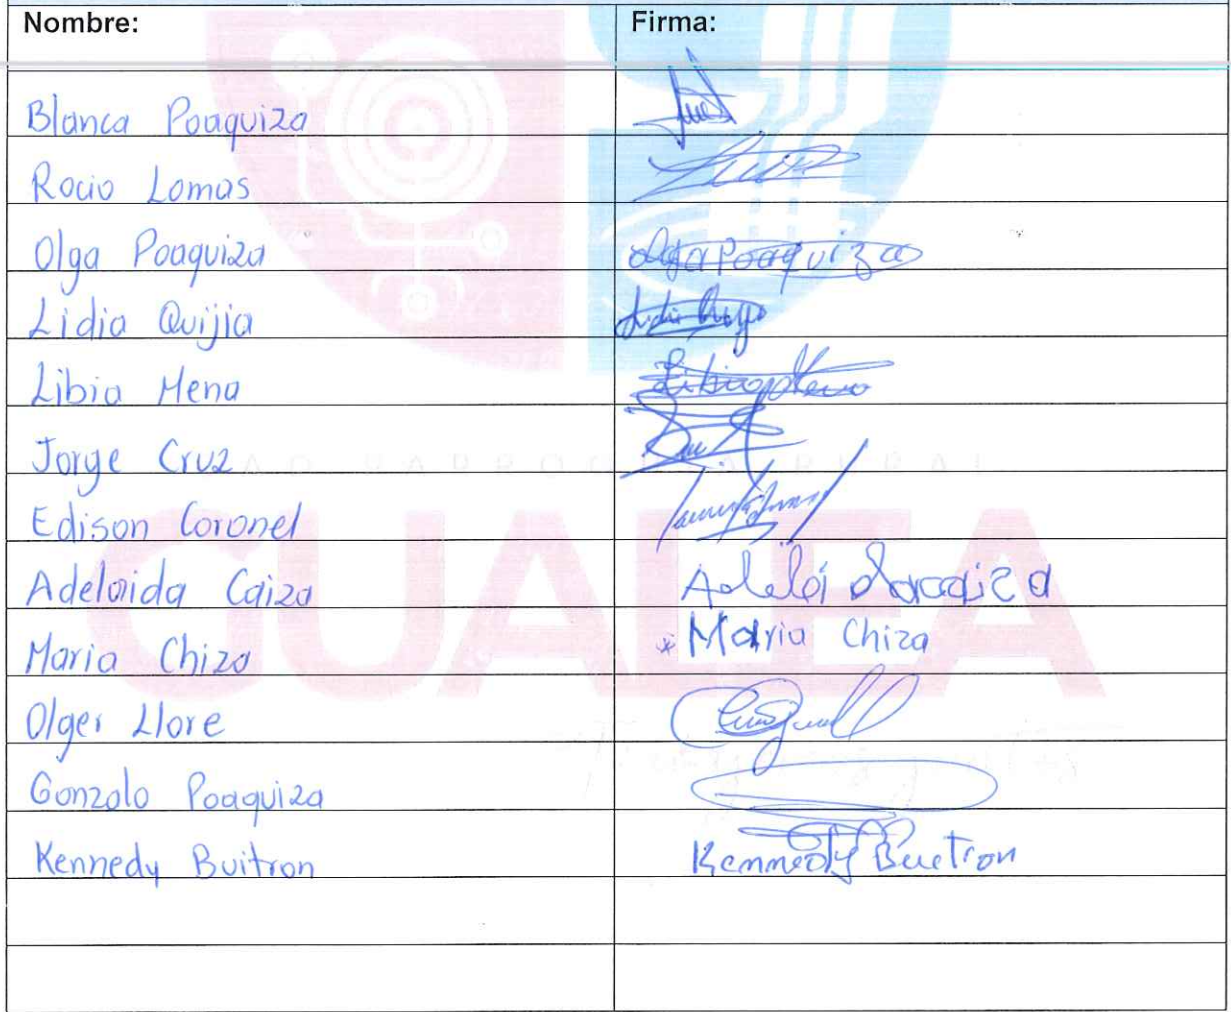 Nombre: Firma:
Blanca Poaquiza
Rocio Lomas
Olga Poaquiza Olga Poaquiza
Lidia Quijia
Libia Mena Libia Mena
Jorge Cruz
Edison Coronel
Adelaida Caiza
Maria Chiza * Maria Chiza
Olger Llore
Gonzalo Poaquiza
Kennedy Buitron Kennedy Buitron
GAD PARROQUIAL RURAL
GUALEA